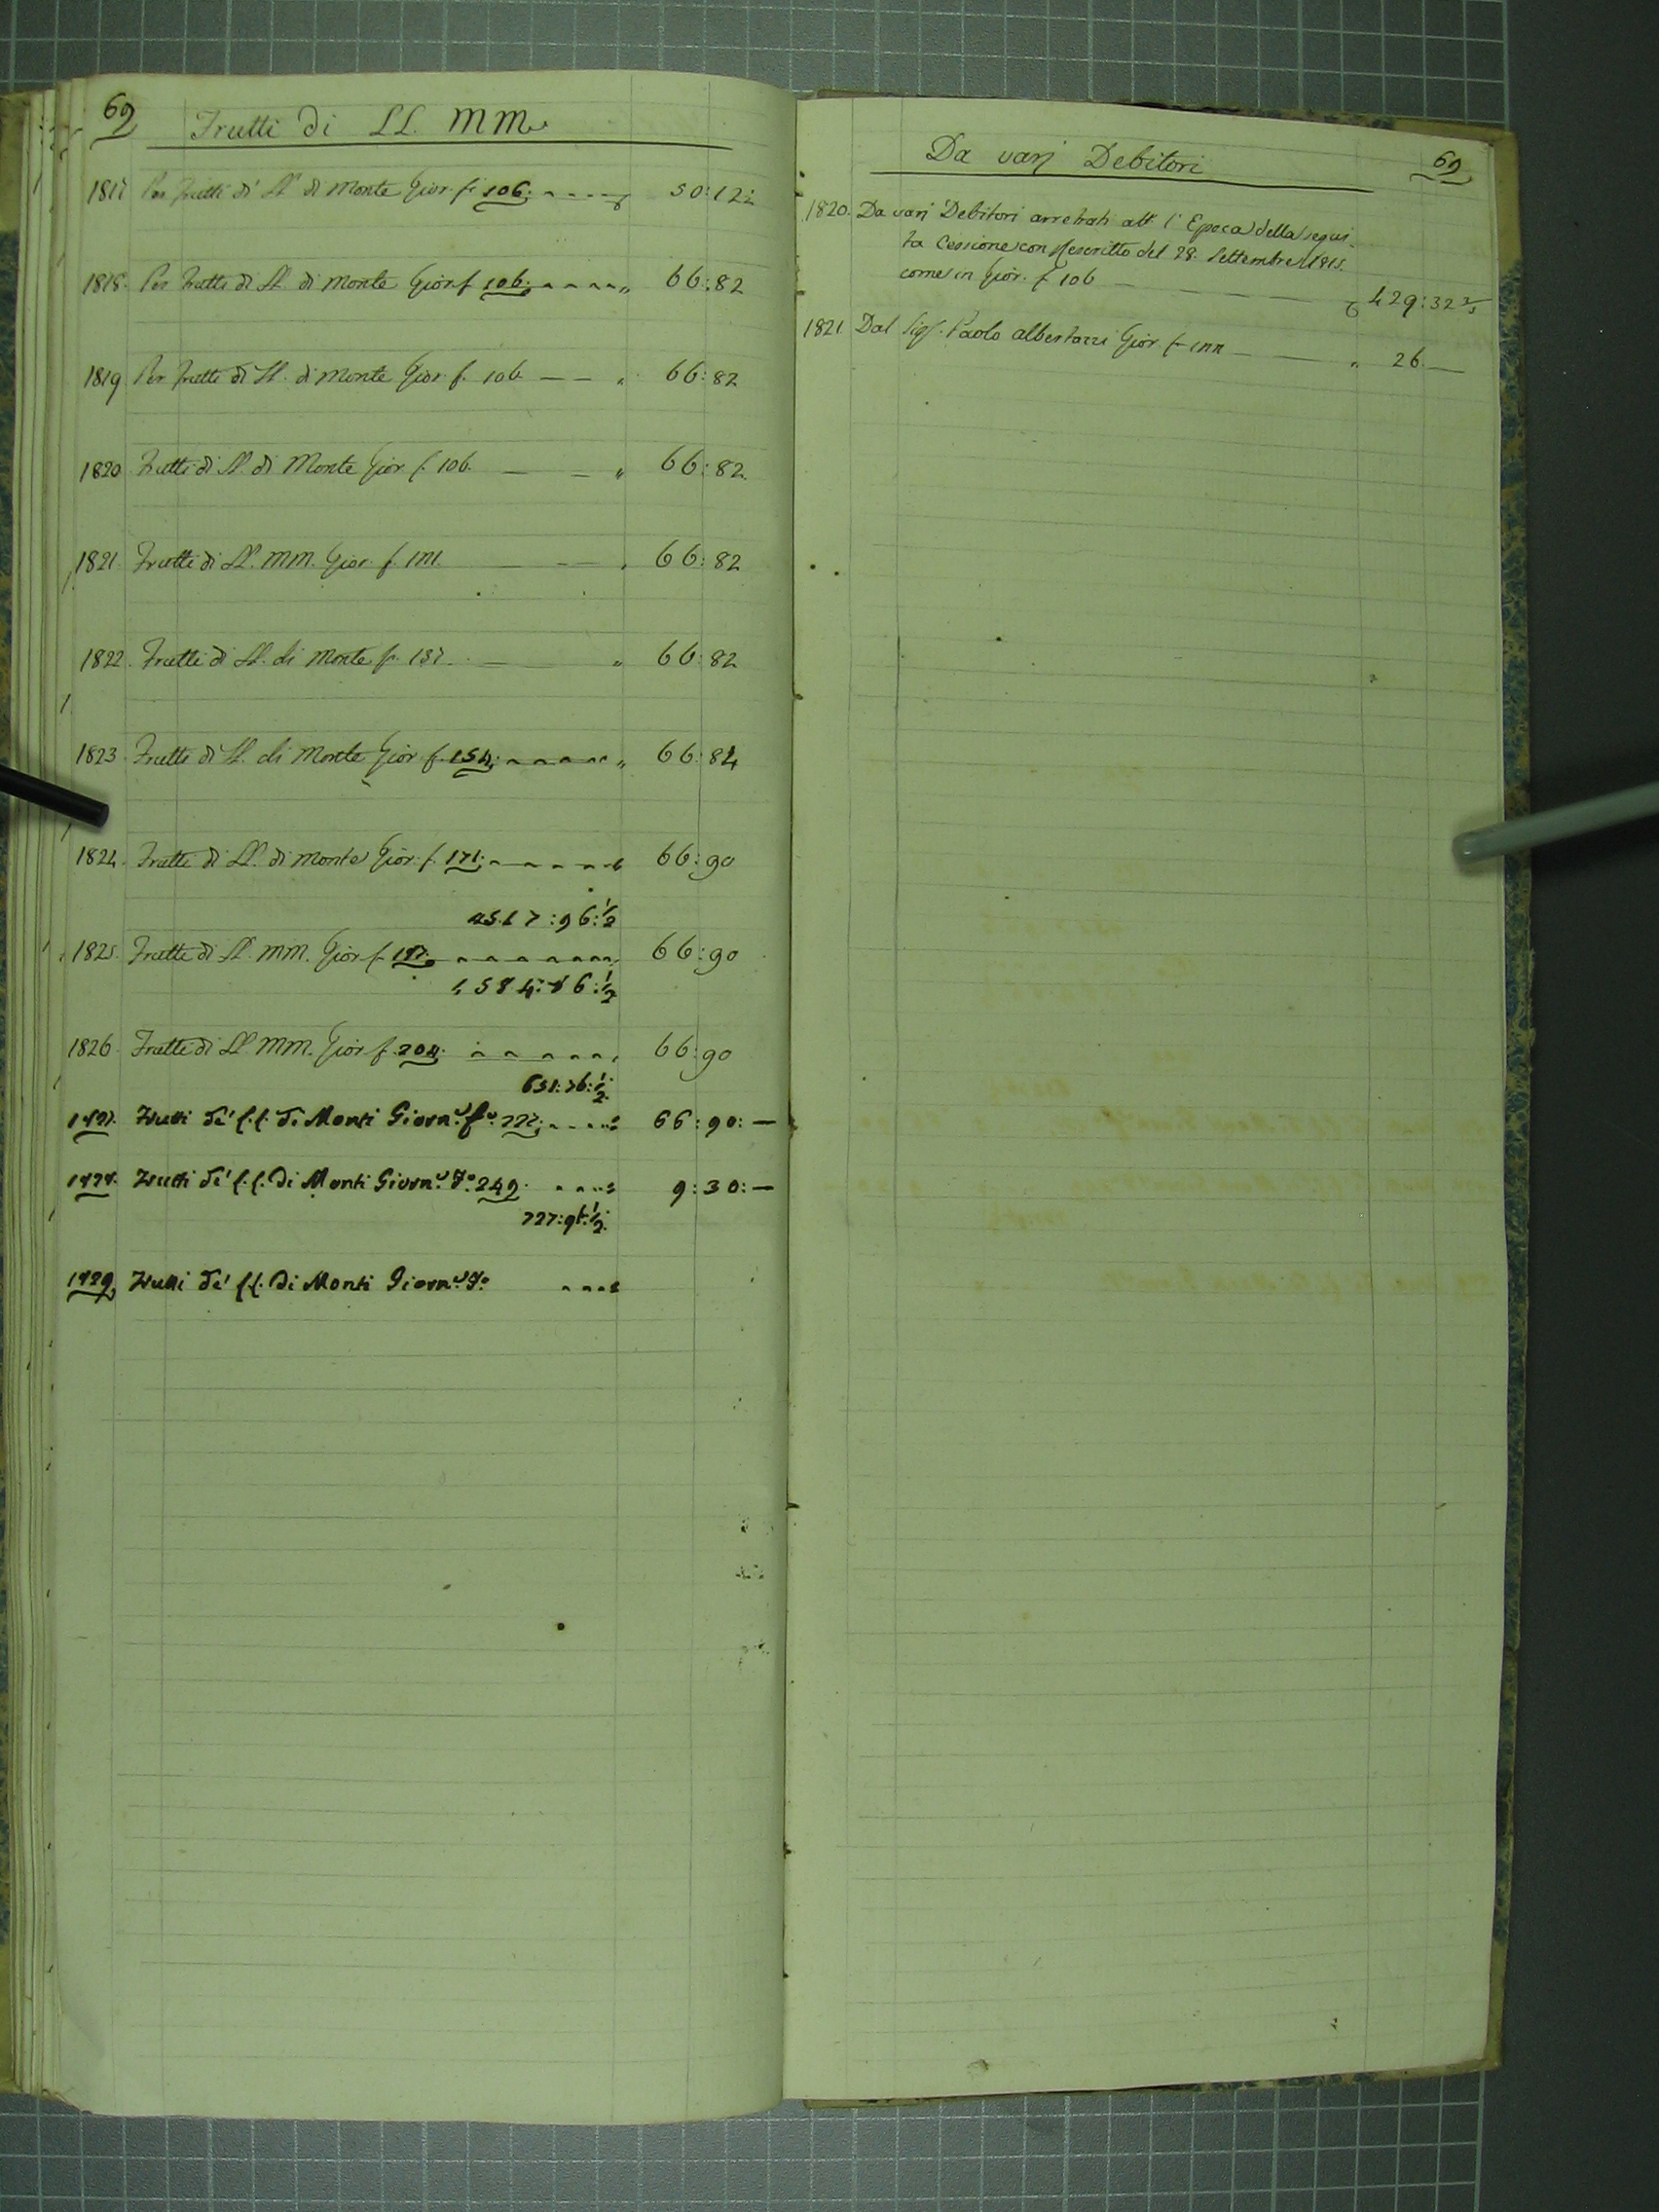 69
Frutti di LL. MM.
1817 Per frutti di LL. di Monte Gior. f. 106. 50:12½
1818. Per frutti di LL. di Monte Gior. f. 106. " 66:82
1819 Per frutti di LL. di Monte Gior. f. 106 — — " 66:82
1820 Frutti di LL. di Monte Gior. f. 106. — — " 66:82.
1821. Frutti di LL. MM. Gior. f. — — 66:82
1822. Frutti di LL. di Monte f. 137. — " 66:82
1823. Frutti di LL. di Monte Gior. f. 154. " 66:84
1824. Frutti di LL. di Monte Gior. f. 171. 66:90
:96:½
1825. Frutti di LL. MM. Gior. f. 66:90
584:86:½
1826. Frutti di LL. MM. Gior. f. 204. 66:90
651:76:½
1827. Frutti de' LL. di Monti Giorn.e f.o 222. 66:90:—
1828. Frutti de' LL. di Monti Giorn.e F.o 249. 9:30:—
727:96:½
1829 Frutti de' LL. di Monti Giorn.e F.o
Da varj Debitori
69
1820. Da varj Debitori arretrati all' Epoca della segui-
ta Cessione con Rescritto del 28. Settembre 1815.
come in Gior. f. 106 — — — — 429:32
1821. Dal Sig.r Paolo Albertazzi Gior. f. — — " 26.—